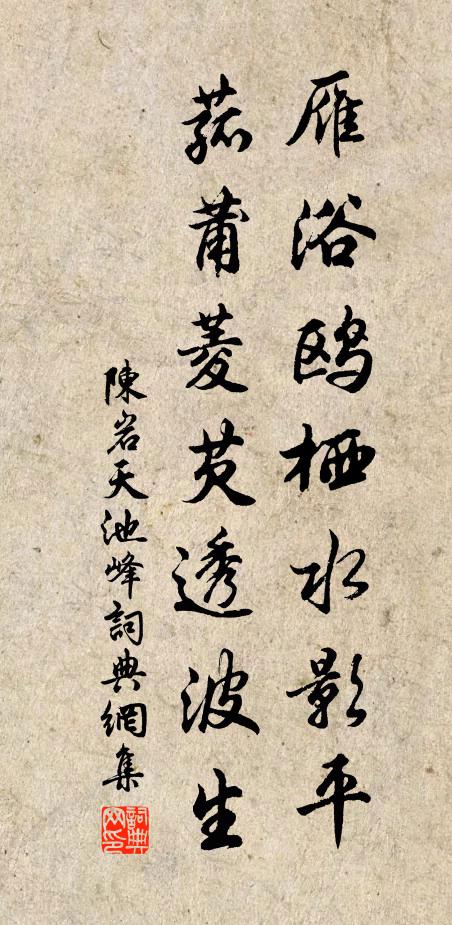 雁浴鸥栖水影平
菰蒲菱芡透波生
陳岩天池峰詞典網集
詞典网印